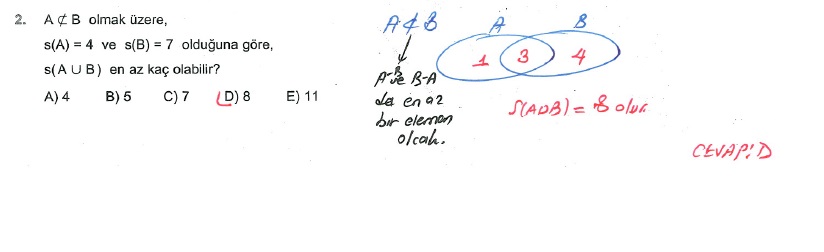 2. A ⊄ B olmak üzere,
s(A) = 4 ve s(B) = 7 olduğuna göre,
s(A ∪ B) en az kaç olabilir?
A) 4 B) 5 C) 7 D) 8 E) 11
A ⊄ B
A-B ve B-A
da en az
bir eleman
olcak.
A B
1 3 4
S(A∪B) = 8 olur
CEVAP: D